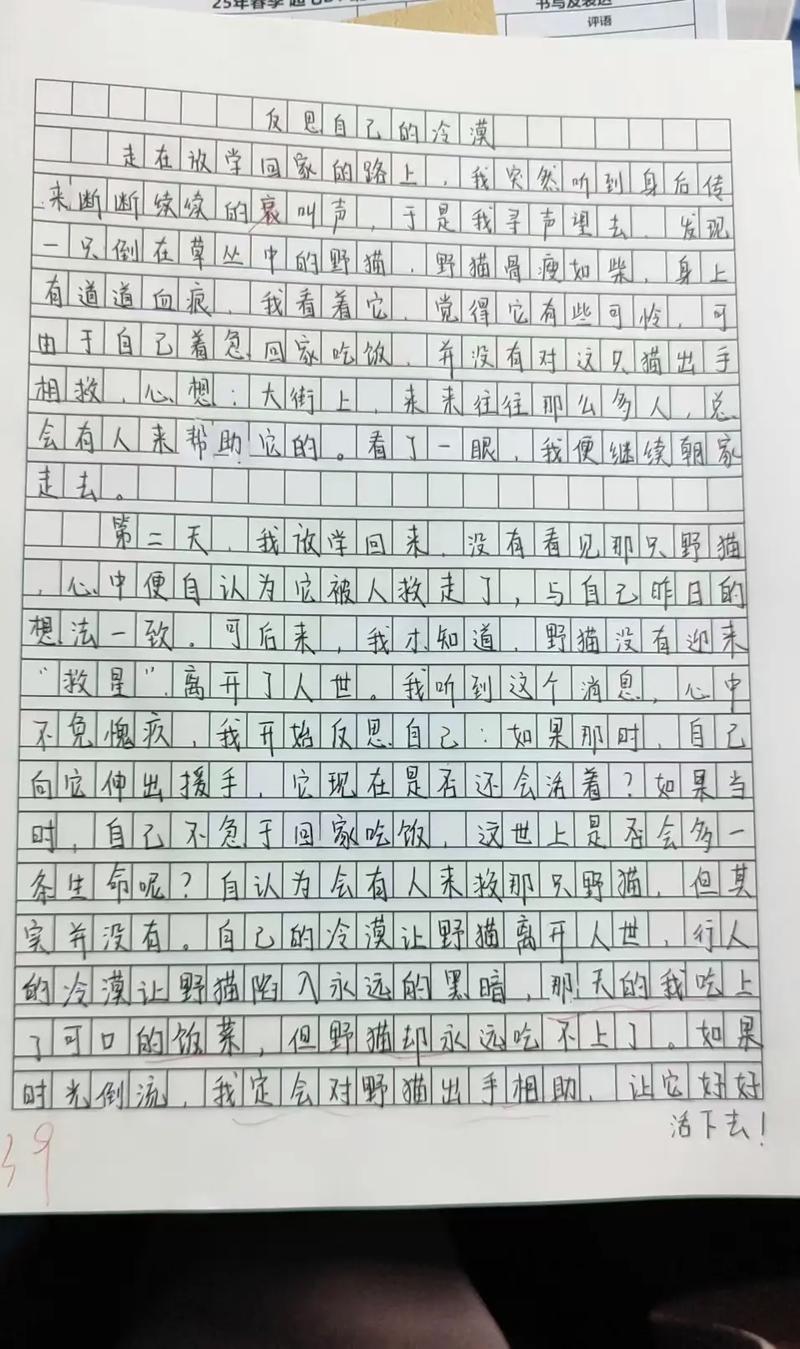 25年春季
书写及表达
评语
反思自己的冷漠
走在放学回家的路上，我突然听到身后传
来断断续续的哀叫声，于是我寻声望去，发现
一只倒在草丛中的野猫，野猫骨瘦如柴，身上
有道道血痕，我看着它，觉得它有些可怜，可
由于自己着急回家吃饭，并没有对这只猫出手
相救，心想：大街上，来来往往那么多人，总
会有人来帮助它的。看了一眼，我便继续朝家
走去。
第二天，我放学回来，没有看见那只野猫
，心中便自认为它被人救走了，与自己昨日的
想法一致。可后来，我才知道，野猫没有迎来
“救星”，离开了人世。我听到这个消息，心中
不免愧疚，我开始反思自己：如果那时，自己
向它伸出援手，它现在是否还会活着？如果当
时，自己不急于回家吃饭，这世上是否会多一
条生命呢？自认为会有人来救那只野猫，但其
实并没有。自己的冷漠让野猫离开人世，行人
的冷漠让野猫陷入永远的黑暗，那天的我吃上
了可口的饭菜，但野猫却永远吃不上了。如果
时光倒流，我定会对野猫出手相助，让它好好
活下去！
39